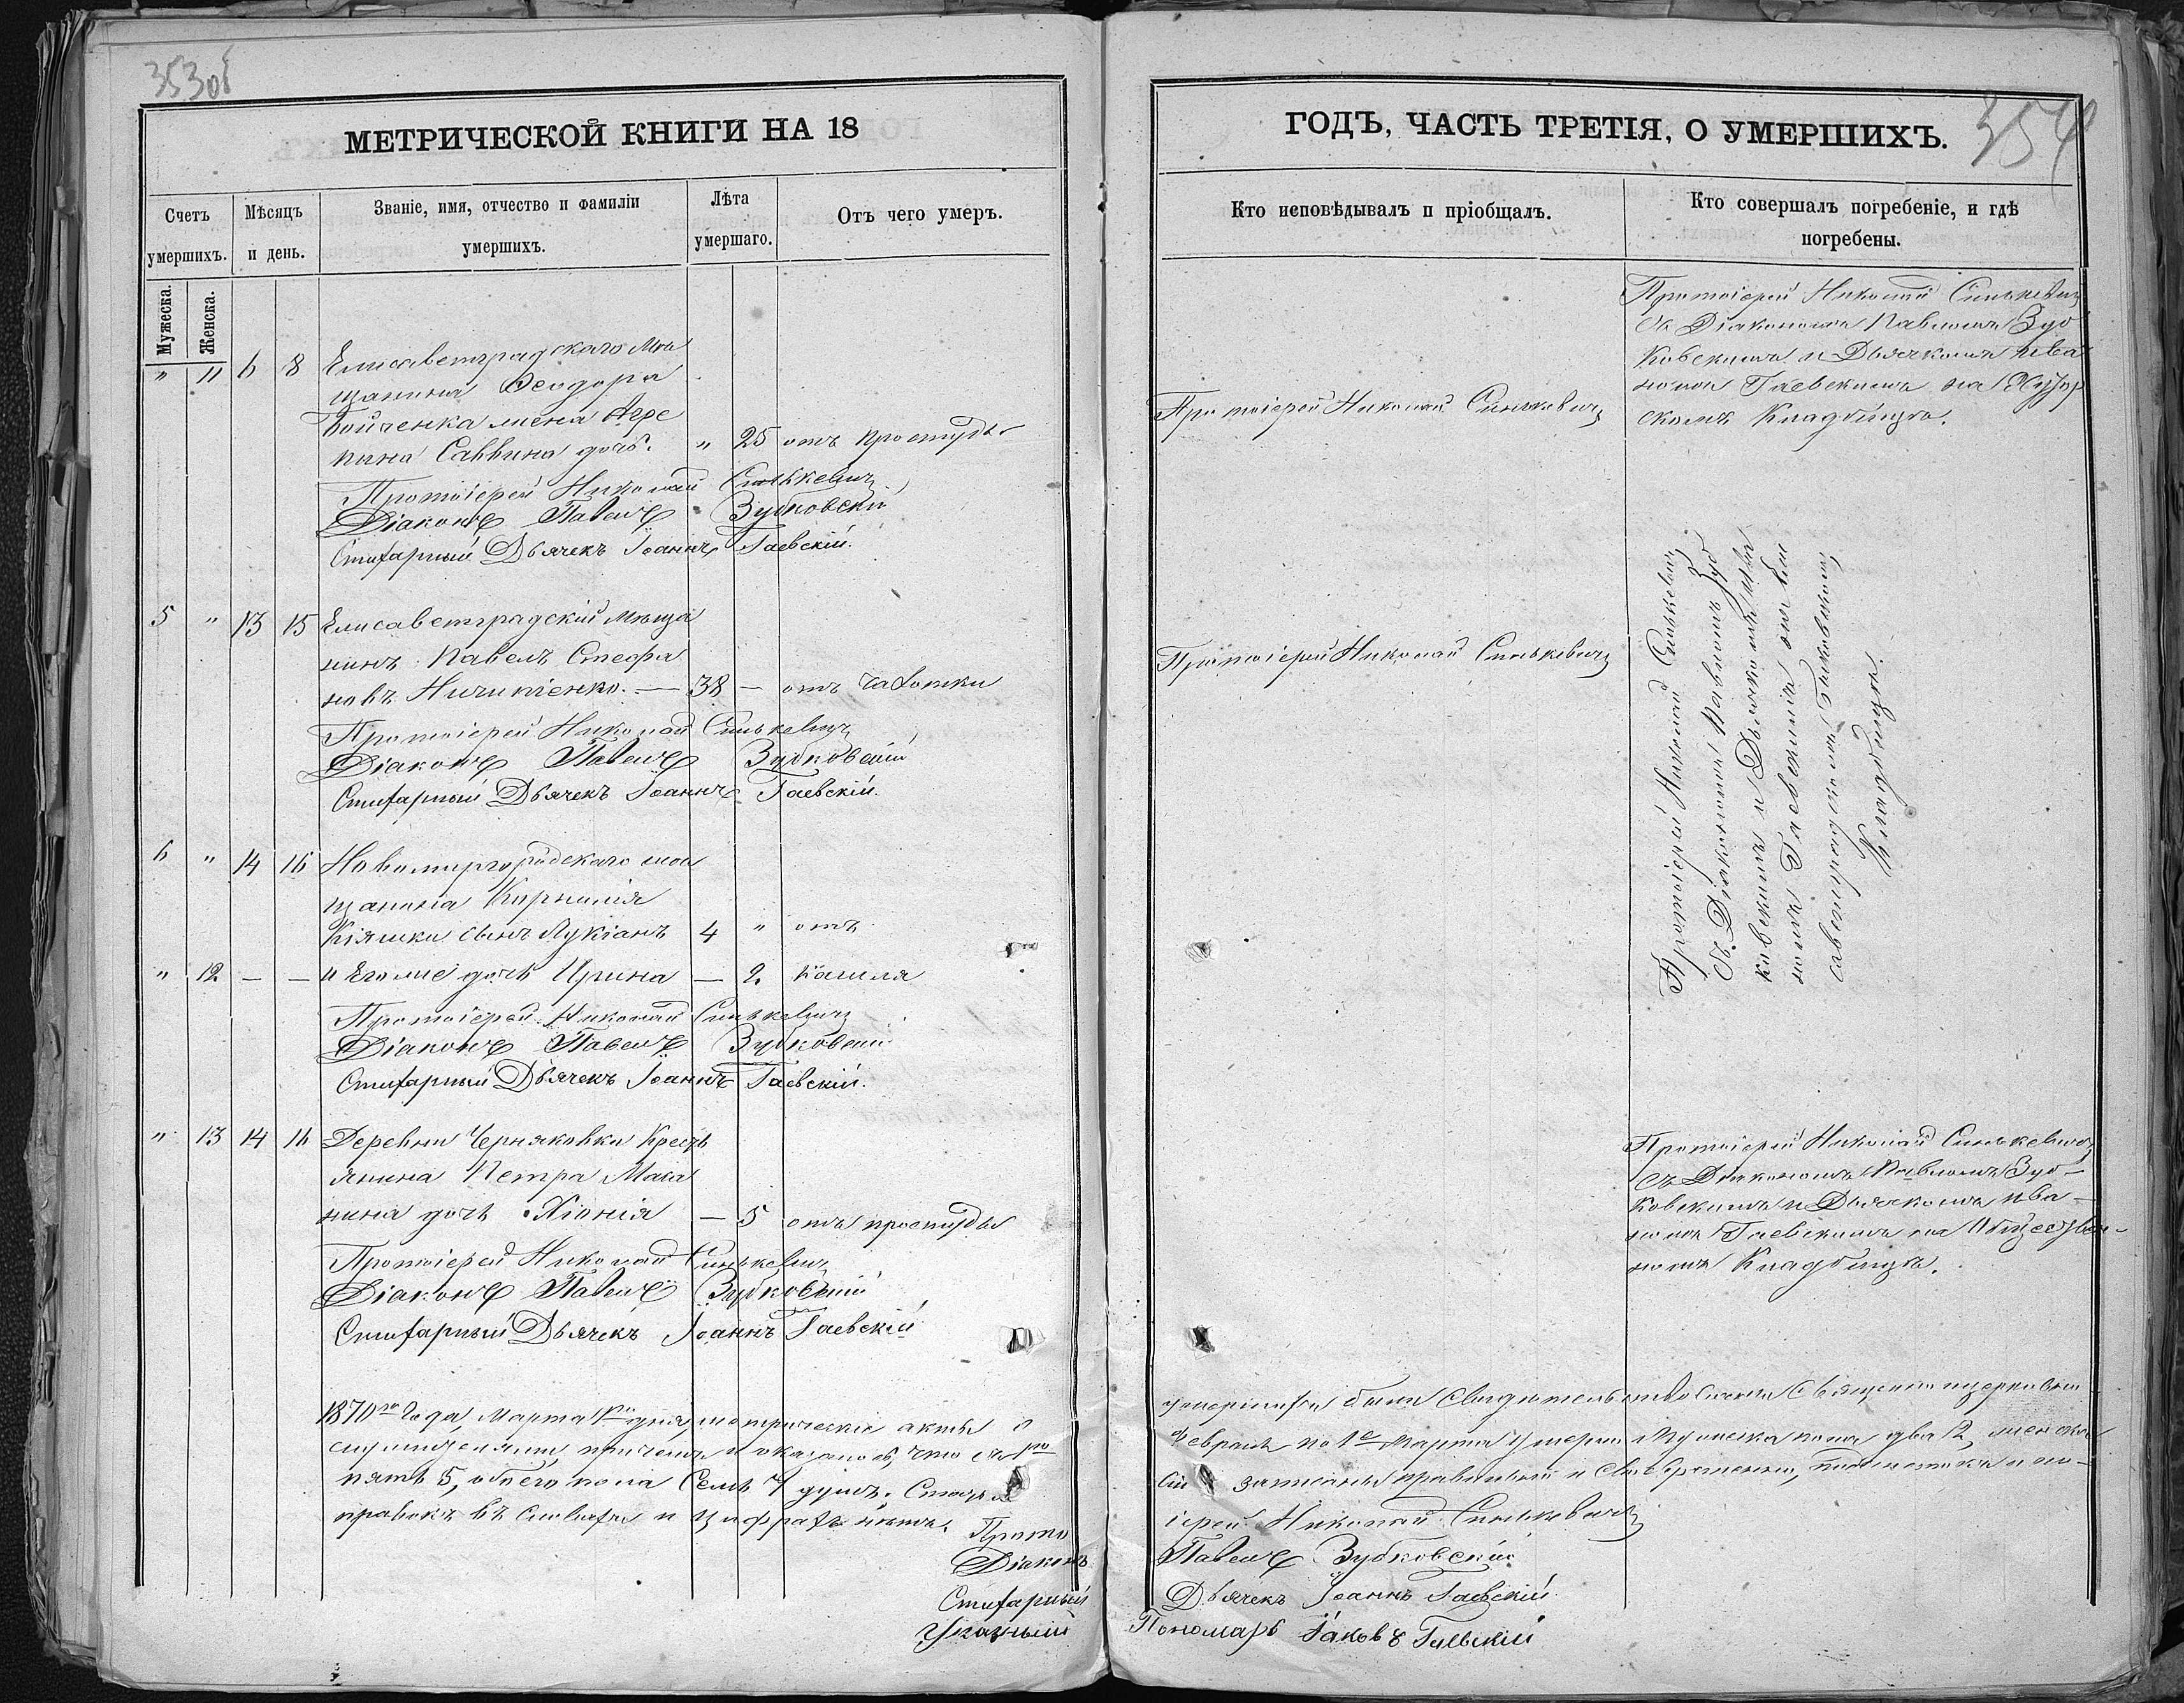 353об
МЕТРИЧЕСКОЙ КНИГИ НА 18
Счетъ умершихъ.
Мѣсяцъ и день.
Званіе, имя, отчество и фамиліи умершихъ.
Лѣта умершаго.
Отъ чего умеръ.
Мужеска.
Женска.
" 11 6 8 Елисаветградскаго мѣ
щанина Ѳеодора
Бойченка жена Агре
пина Саввина дочь. " 25 отъ простуды
Протоіерей Николай Синькевичъ
Діаконъ Павелъ Зубковскій
Стихарный Дьячекъ Іоаннъ Гаевскій.
5 " 13 15 Елисаветградскій мѣща
нинъ Павелъ Стефа
новъ Ничипіенко. — 38 — отъ чахотки
Протоіерей Николай Синькевичъ
Діаконъ Павелъ Зубковскій
Стихарный Дьячекъ Іоаннъ Гаевскій.
6 " 14 16 Новомиргородскаго мѣ
щанина Корнилія
Кіяшки сынъ Лукіанъ 4 " отъ
" 12 — — и Его же дочь Ирина — 2. кашля
Протоіерей Николай Синькевичъ
Діаконъ Павелъ Зубковскій
Стихарный Дьячекъ Іоаннъ Гаевскій.
" 13 14 16 Деревни Черняховки Кресть
янина Петра Мака
нина дочь Хіонія — 5 отъ простуды
Протоіерей Николай Синькевичъ
Діаконъ Павелъ Зубковскій
Стихарный Дьячекъ Іоаннъ Гаевскій
1870го Года, Марта 1го дня, метрическіе акты о
служителями, причемъ и оказалось, что съ 1го
пять 5, обоего пола Семь 7 душъ. Статьи
правокъ въ словахъ и цифрахъ нѣтъ. Прото
Діаконъ
Стихарный
Указный
354
ГОДЪ, ЧАСТЬ ТРЕТІЯ, О УМЕРШИХЪ.
Кто исповѣдывалъ и пріобщалъ.
Кто совершалъ погребеніе, и гдѣ погребены.
Протоіерей Николай Синькевичъ
Протоіерей Николай Синькевичъ
съ Діакономъ Павломъ Зуб
ковскимъ и Дьячкомъ Ива
номъ Гаевскимъ на Хутор
скомъ Кладбищѣ.
Протоіерей Николай Синькевичъ
Протоіерей Николай Синькевичъ
съ Діакономъ Павломъ Зуб
ковскимъ и Дьячкомъ Ива
номъ Гаевскимъ на Ели
саветградскомъ
Кладбищѣ.
Протоіерей Николай Синькевичъ
съ Діакономъ Павломъ Зуб-
ковскимъ и Дьячкомъ Ива-
номъ Гаевскимъ на Обществен-
номъ Кладбищѣ.
умершихъ были свидѣтельствованы Священно церковно
Февраля по 1е Марта умерло Мужеска пола два 2, женска
сіи записаны правильно и своевременно, и по-
іерей Николай Синькевичъ
Павелъ Зубковскій
Дьячекъ Іоаннъ Гаевскій
Пономарь Іаковъ Гаевскій